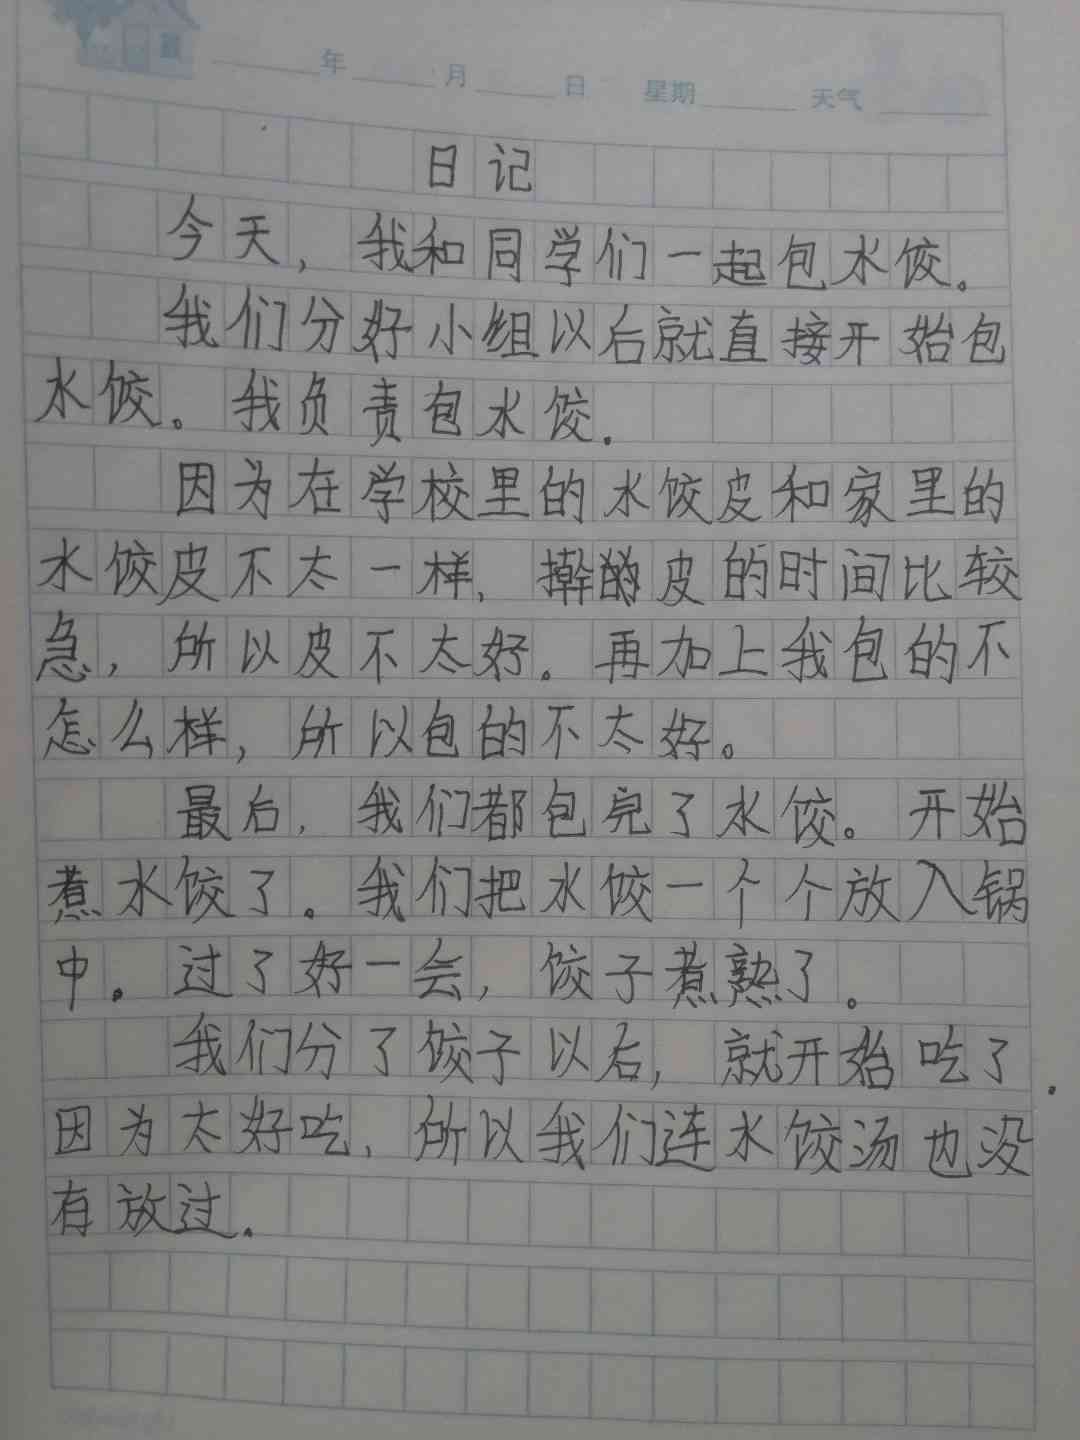 年 月 日 星期 天气
日记
今天，我和同学们一起包水饺。
我们分好小组以后就直接开始包
水饺。我负责包水饺.
因为在学校里的水饺皮和家里的
水饺皮不太一样，擀 皮的时间比较
急，所以皮不太好。再加上我包的不
怎么样，所以包的不太好。
最后，我们都包完了水饺。开始
煮水饺了。我们把水饺一个个放入锅
中。过了好一会，饺子煮熟了。
我们分了饺子以后，就开始吃了.
因为太好吃，所以我们连水饺汤也没
有放过。